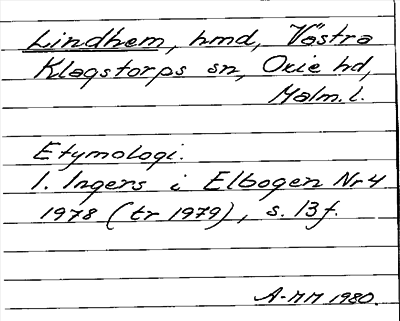 Lindhem, hmd, Västra
Klagstorps sn, Oxie hd,
Malm.l.
Etymologi.
I. Ingers i Elbogen Nr 4
1978 (tr 1979), s. 13f.
A-MM 1980.